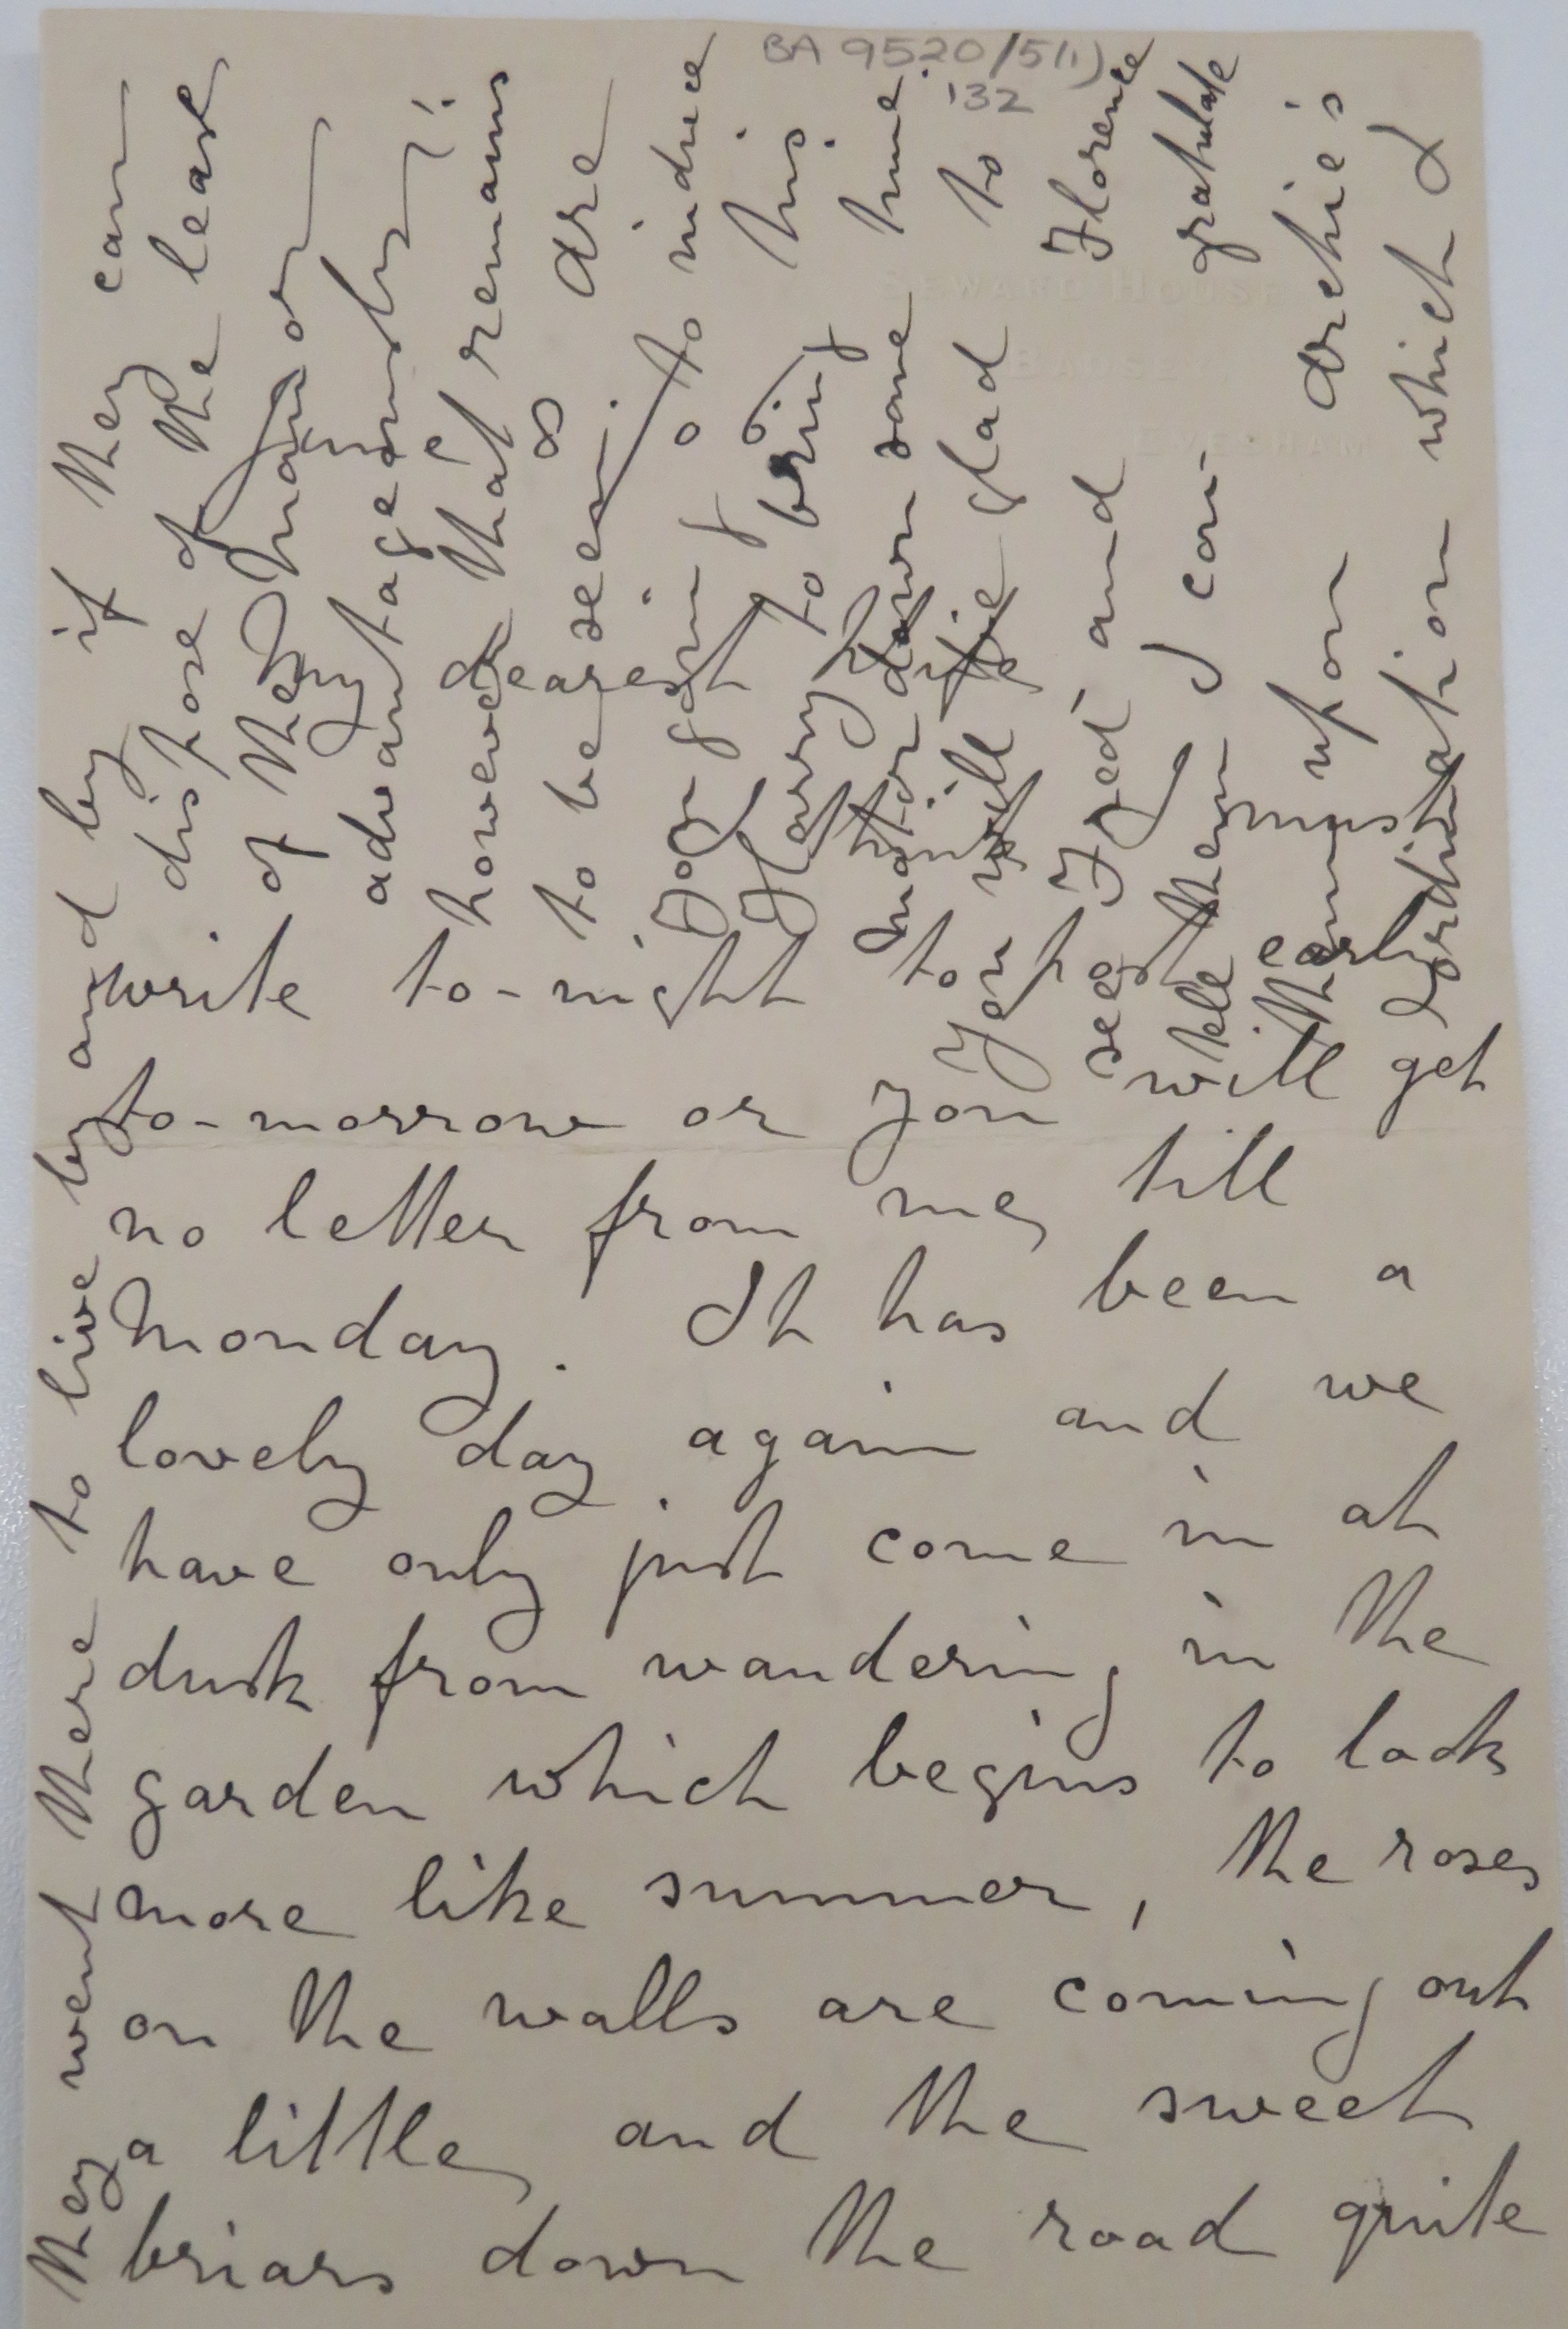 BA 9520/5(1)
'32
SEWARD HOUSE
BADSEY,
EVESHAM
My dearest Wife
must
write to-night to post early
to-morrow or you will get
no letter from me till
Monday. It has been a
lovely day again and we
have only just come in at
dusk from wandering in the
garden which begins to look
more like summer, the roses
on the walls are coming out
a little and the sweet
briars down the road quite
they went there to live by and by if they can
dispose of the lease
of the Manor
advantageously!
however that remains
to be seen. Are
you going to induce
Harry to bring his
motor down some time.
You will be glad to
see Fred and Florence
tell them I congratulate
them upon Archie's
ordination which I